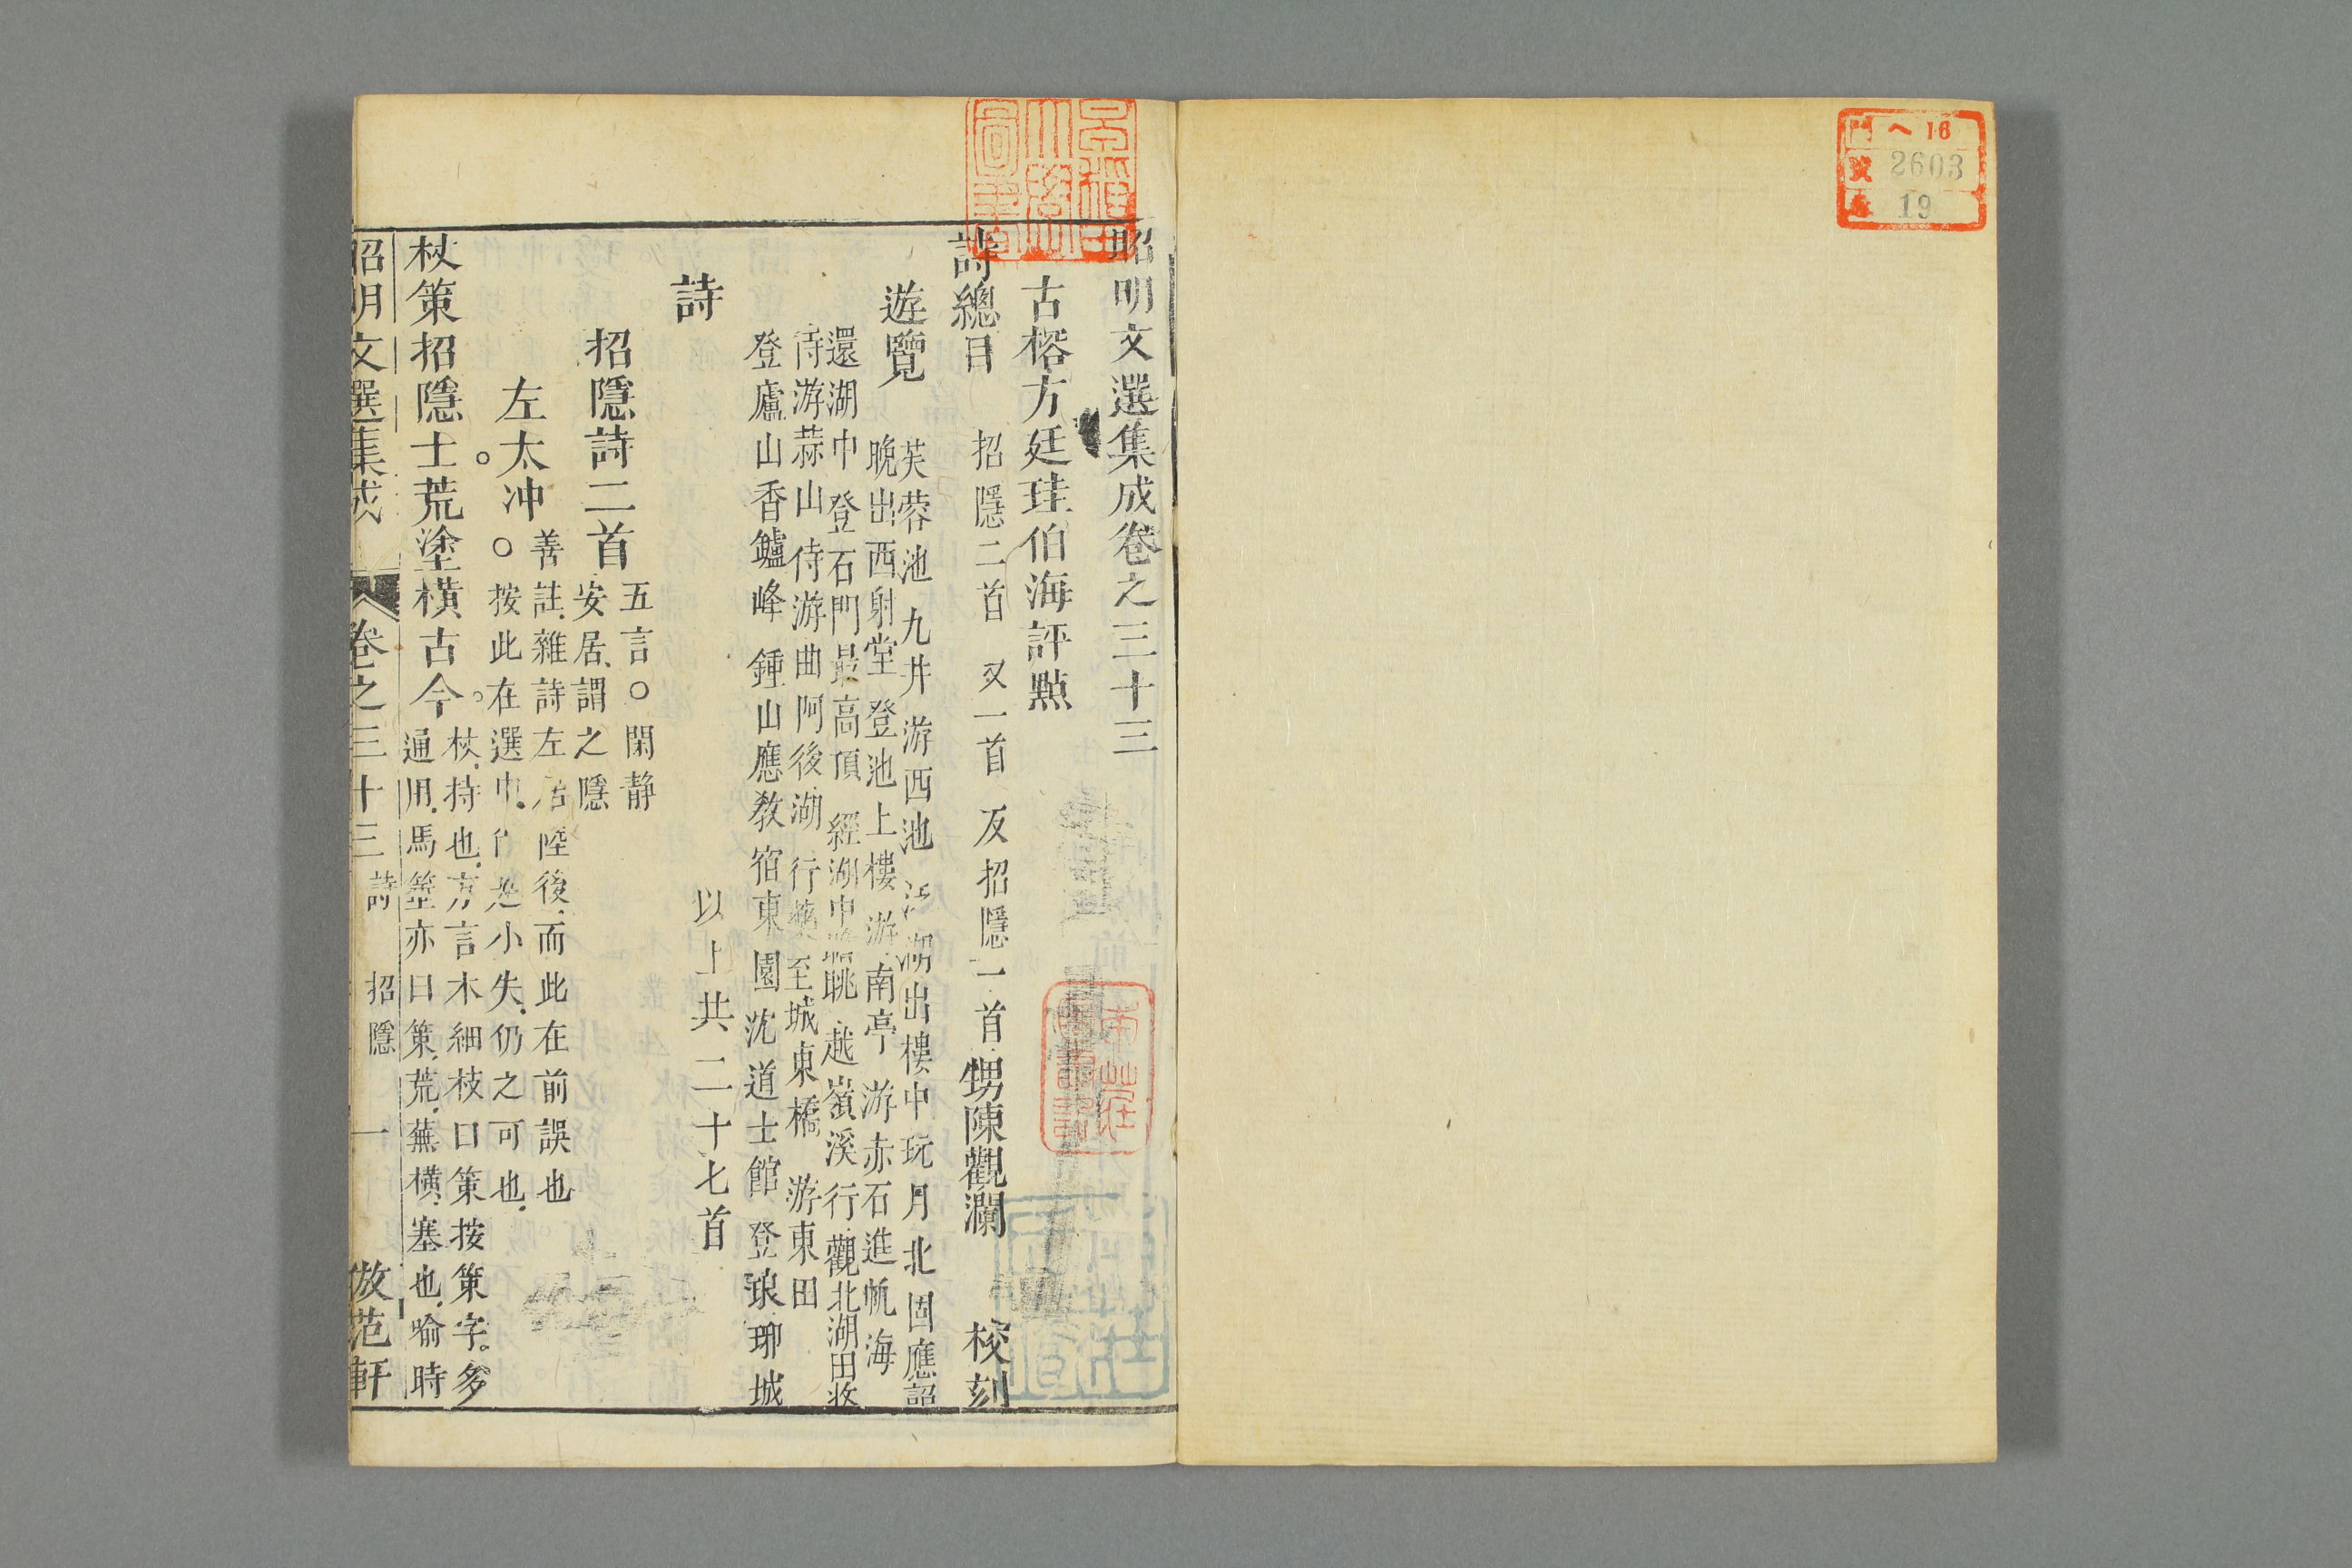 門 ヘ 16
號 2603
卷 19
昭明文選集成卷之三十三
古榕方廷珪伯海評點
詩總目 招隱二首 又一首 反招隱一首 甥陳觀瀾 校刻
遊覽 芙蓉池 九井 游西池 湖出樓中玩月 北固應詔
晚出西射堂 登池上樓 游南亭 游赤石進帆海
還湖中 登石門最高頂 經湖中瞻眺 越嶺溪行 觀北湖田收
侍游蒜山 侍游曲阿後湖 行藥至城東橋 游東田
登廬山香鑪峰 鍾山應教 宿東園 沈道士館 登琅琊城
以上共二十七首
詩
招隱詩二首 五言○閑静
安居謂之隱
左太冲 善註雜詩左居陸後而此在前誤也
○按此在選中小失仍之可也
杖策招隱士荒塗橫古今 杖持也方言木細枝曰策按策字多
通用馬箠亦曰策荒蕪橫塞也喻時
昭明文選集成 卷之三十三 詩 招隱 一 倣范軒